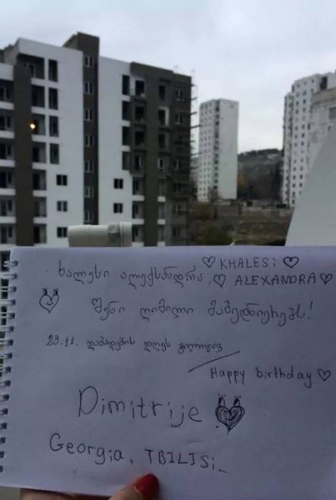 ხალესი ალექსანდრა, ♡ KHALESi ♡
♡ ALEXANDRA ♡
შენი ღიმილი მაბედნიერებს!
29.11. დაბადების დღეს გილოცავ
Happy birthday ♡
Dimitrije
Georgia, TBILISi_